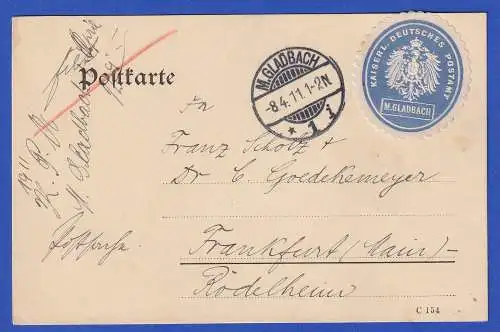 Postkarte
M.GLADBACH
-8.4.11.1-2N
* 1 i
KAISERL. DEUTSCHES POSTAMT
M.GLADBACH
An
Franz Scholz &
Dr C. Goedekemeyer
Frankfurt (Main)-
Rödelheim
M. Gladbach
Postsache.
C 154